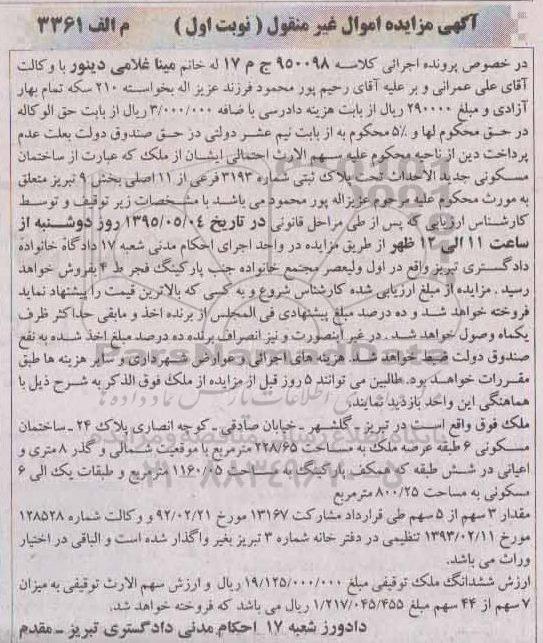 آگهی مزایده اموال غیر منقول ( نوبت اول )       م الف ۳۳۶۱
در خصوص پرونده اجرائی کلاسه ۹۵۰۰۹۸ ج م ۱۷ له خانم مینا غلامی دینور با وکالت
آقای علی عمرانی و بر علیه آقای رحیم پور محمود فرزند عزیز اله بخواسته ۲۱۰ سکه تمام بهار
آزادی و مبلغ ۲۹۰۰۰۰ ریال از بابت هزینه دادرسی با ضافه ۳/۰۰۰/۰۰۰ ریال از بابت حق الوکاله
در حق محکوم لها و ۵٪ محکوم به از بابت نیم عشر دولتی در حق صندوق دولت بعلت عدم
پرداخت دین از ناحیه محکوم علیه سهم الارث احتمالی ایشان از ملک که عبارت از ساختمان
مسکونی جدید الاحداث تحت پلاک ثبتی شماره ۳۱۹۳ فرعی از ۱۱ اصلی بخش ۹ تبریز متعلق
به مورث محکوم علیه مرحوم عزیزاله پور محمود می باشد با مشخصات زیر توقیف و توسط
کارشناس ارزیابی که پس از طی مراحل قانونی در تاریخ ۱۳۹۵/۰۵/۰۴ روز دوشنبه از
ساعت ۱۱ الی ۱۲ ظهر از طریق مزایده در واحد اجرای احکام مدنی شعبه ۱۷ دادگاه خانواده
دادگستری تبریز واقع در اول ولیعصر مجتمع خانواده جنب پارکینگ فجر ط ۴ بفروش خواهد
رسید . مزایده از مبلغ ارزیابی شده کارشناس شروع و به کسی که بالاترین قیمت را پیشنهاد نماید
فروخته خواهد شد و ده درصد مبلغ پیشنهادی فی المجلس از برنده اخذ و مابقی حداکثر ظرف
یکماه وصول خواهد شد . در غیر اینصورت و نیز انصراف برنده ده درصد مبلغ اخذ شده به نفع
صندوق دولت ضبط خواهد شد. هزینه های اجرائی و عوارض شهرداری و سایر هزینه ها طبق
مقررات خواهد بود. طالبین می توانند ۵ روز قبل از مزایده از ملک فوق الذکر به شرح ذیل با
هماهنگی این واحد بازدید نمایند.
ملک فوق واقع است در تبریز ـ گلشهر ـ خیابان صادقی ـ کوچه انصاری پلاک ۲۴ ـ ساختمان
مسکونی ۶ طبقه عرصه ملک به مساحت ۲۲۸/۶۵ مترمربع با موقعیت شمالی و گذر ۸ متری و
اعیانی در شش طبقه که همکف پارکینگ به مساحت ۱۱۶۰/۰۵ مترمربع و طبقات یک الی ۶
مسکونی به مساحت ۸۰۰/۲۵ مترمربع
مقدار ۳ سهم از ۵ سهم طی قرارداد مشارکت ۱۳۱۶۷ مورخ ۹۲/۰۲/۲۱ و وکالت شماره ۱۲۸۵۲۸
مورخ ۱۳۹۳/۰۲/۱۱ تنظیمی در دفتر خانه شماره ۳ تبریز بغیر واگذار شده است و الباقی در اختیار
وراث می باشد.
ارزش ششدانگ ملک توقیفی مبلغ ۱۹/۱۲۵/۰۰۰/۰۰۰ ریال و ارزش سهم الارث توقیفی به میزان
۷ سهم از ۴۴ سهم مبلغ ۱/۲۱۷/۰۴۵/۴۵۵ ریال می باشد که فروخته خواهد شد.
دادورز شعبه ۱۷ احکام مدنی دادگستری تبریز ـ مقدم